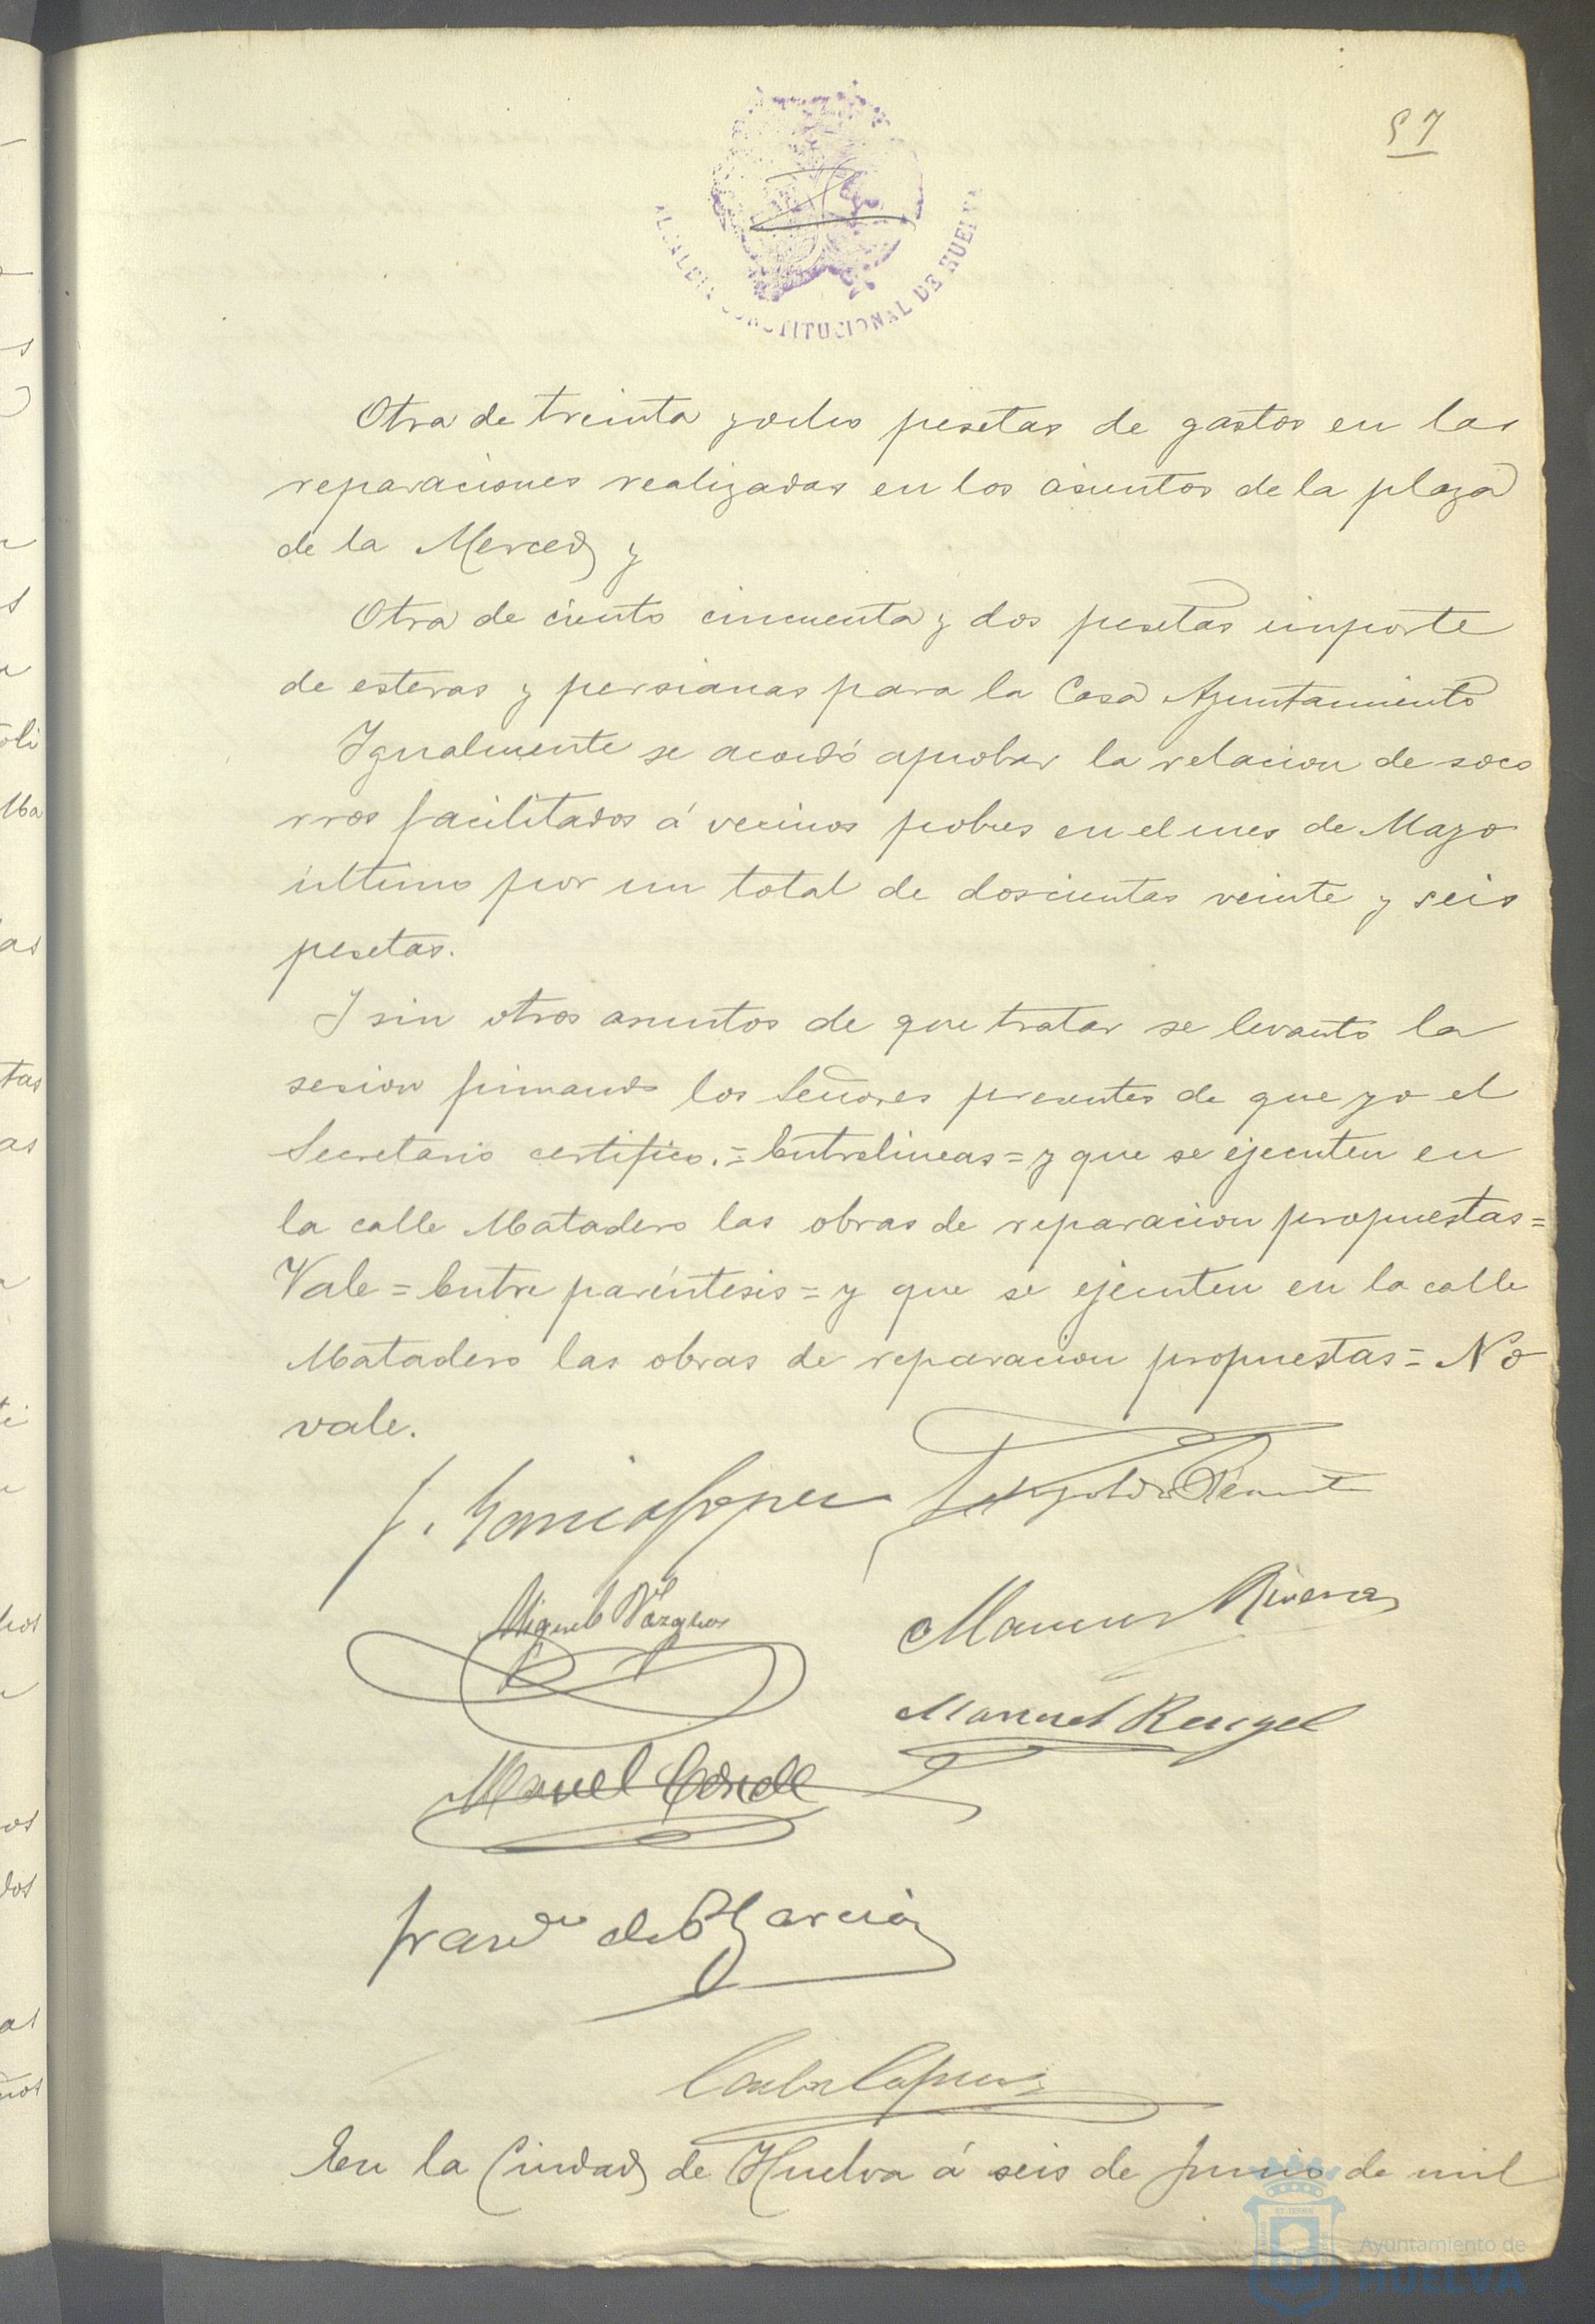 57
ALCALDIA CONSTITUCIONAL DE HUELVA
Otra de treinta y ocho pesetas de gastos en las
reparaciones realizadas en los asientos de la plaza
de la Merced y
Otra de ciento cincuenta y dos pesetas importe
de esteras y persianas para la Casa Ayuntamiento
Igualmente se acordó aprobar la relacion de soco
rros facilitados á vecinos pobres en el mes de Mayo
último por un total de doscientas veinte y seis
pesetas.
Y sin otros asuntos de que tratar se levanto la
sesion firmando los Señores presentes de que yo el
Secretario certifico.=Entrelineas=y que se ejecuten en
la calle Matadero las obras de reparacion propuestas=
Vale=Entre paréntesis=y que se ejecuten en la calle
Matadero las obras de reparacion propuestas=No
vale.
J. Garcia Lopez
Miguel Vázquez
Rivera
Manuel Rengel
Manuel Conde
Garcia
En la Ciudad de Huelva á seis de Junio de mil
Ayuntamiento de
HUELVA